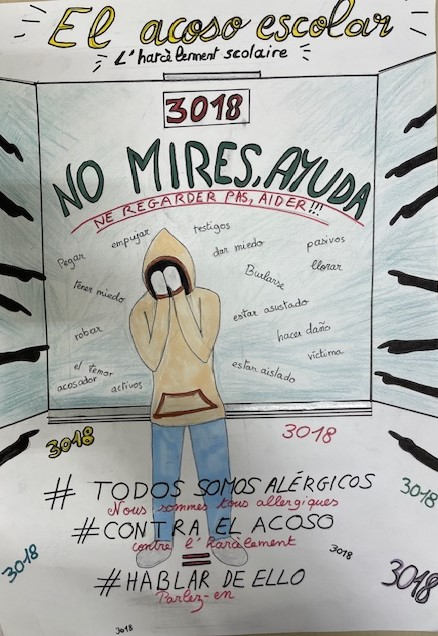 El acoso escolar
L'haràlement scolaire
3018
NO MIRES, AYUDA
NE REGARDER PAS, AIDER!!!
Pegar
empujar
testigos
dar miedo
pasivos
llorar
Burlarse
tener miedo
estar asustado
robar
hacer daño
víctima
el temor
acosador
activos
estar aislado
3018
3018
# TODOS SOMOS ALÉRGICOS
Nous sommes tous allergiques
3018
# CONTRA EL ACOSO
contre l'haràlement
3018
3018
=
#HABLAR DE ELLO
Parlez-en
3018
3018